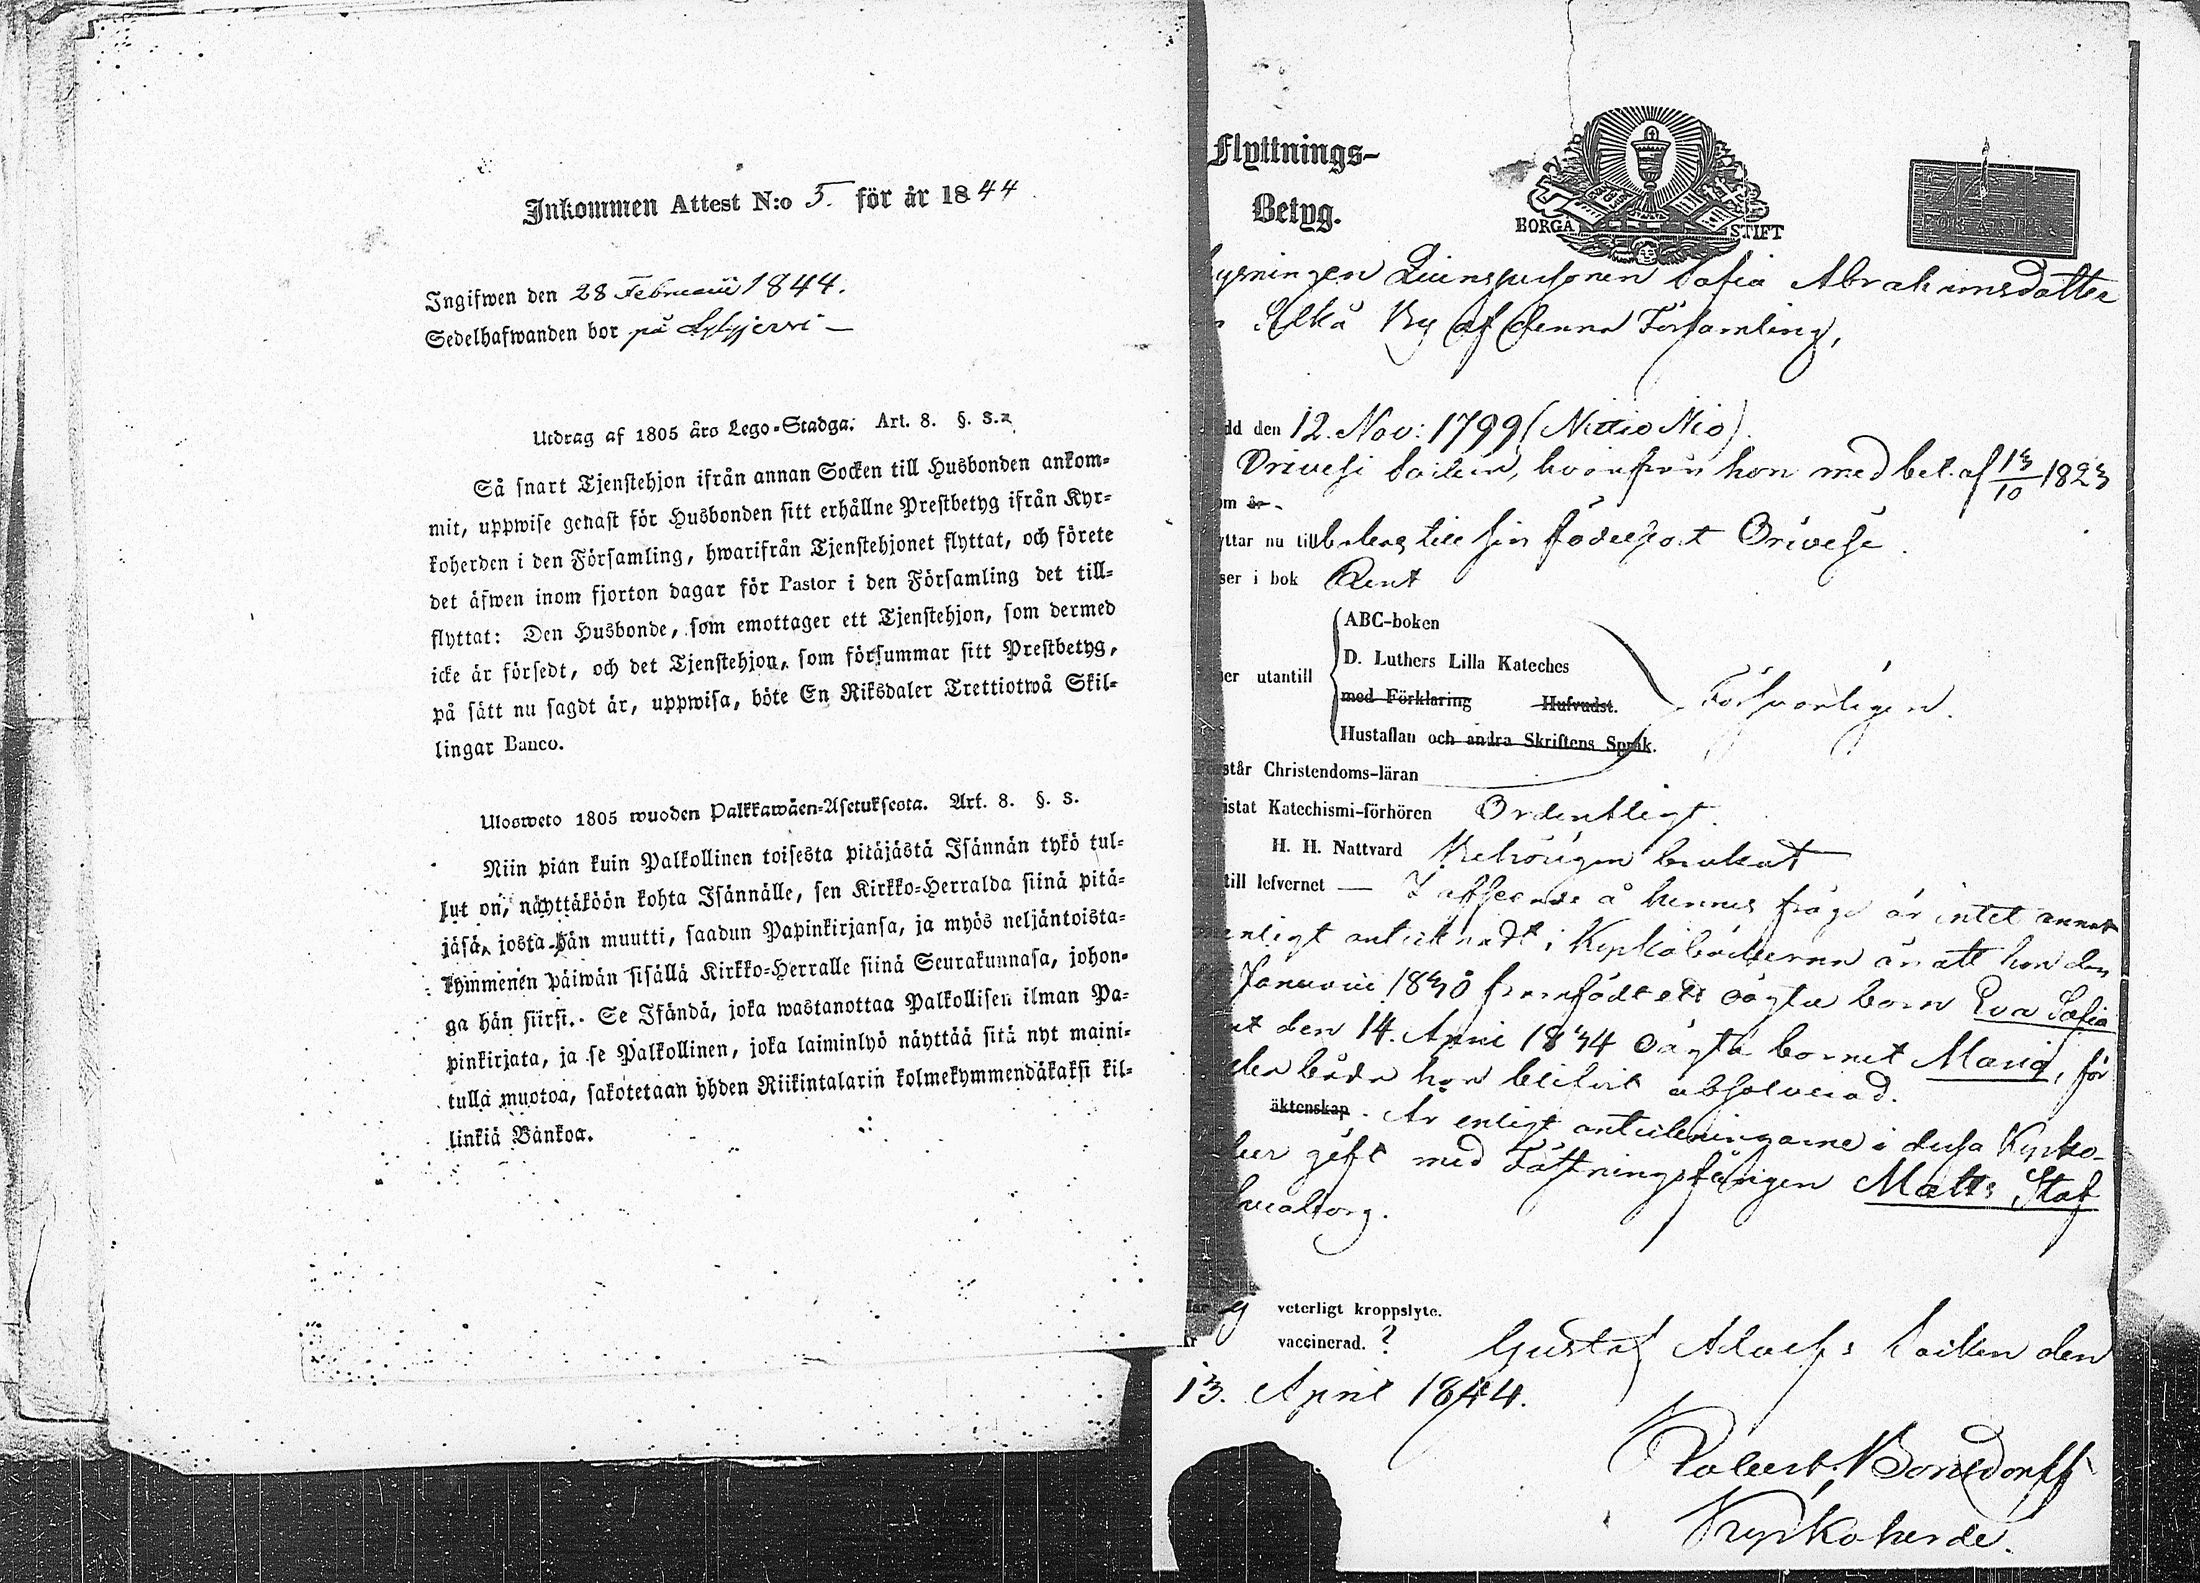 Inkommen Attest N:o 5. för år 1844
Ingifwen den 28 Februarii 1844.
Sedelhafwanden bor på
Utdrag af 1805 års Lego-Stadga. Art. 8. §. 3.
Så snart Tjenstehjon ifrån annan Socken till Husbonden ankom-
mit, uppwise genast för Husbonden sitt erhållne Prestbetyg ifrån Kyr-
koherden i den Församling, hwarifrån Tjenstehjonet flyttat, och förete
det äfwen inom fjorton dagar för Pastor i den Församling det till-
flyttat: Den Husbonde, som emottager ett Tjenstehjon, som dermed
icke är försedt, och det Tjenstehjon, som försummar sitt Prestbetyg,
på sätt nu sagdt är, uppwisa, böte En Riksdaler Trettiotwå Skil-
lingar Banco.
Ulosweto 1805 wuoden Palkkawäen-Asetuksesta. Art. 8. §. 3.
Niin pian kuin Palkollinen toisesta pitäjästä Isännän tykö tul-
lut on, näyttäköön kohta Isännälle, sen Kirkko-Herralda siinä pitä-
jäsä, josta hän muutti, saadun Papinkirjansa, ja myös neljäntoista-
kymmenen päiwän sisällä Kirkko-Herralle siinä Seurakunnasa, johon-
ga hän siirsi. Se Isändä, joka wastanottaa Palkollisen ilman Pa-
pinkirjata, ja se Palkollinen, joka laiminlyö näyttää sitä nyt maini-
tulla muotoa, sakotetaan yhden Riikintalarin kolmekymmendäkaksi kil-
linkiä Bankoa.
Flyttnings-
Betyg.
BORGÅ STIFT
Qvinspersonen Sofia Abrahamsdotter
By af denna Församling,
dd den 12. Nov: 1799 (Nittio Nio).
Orivesi Socken, hvarifrån hon med bet. af 13/10 1823
om år
yttar nu till baka till sin födelseort Orivesi.
ser i bok Rent
ABC-boken
D. Luthers Lilla Kateches
er utantill
med Förklaring Hufvudst.
Försvarligen.
Hustaflan och andra Skriftens Språk.
står Christendoms-läran
istat Katechismi-förhören Ordentligt.
H. H. Nattvard Behörigen brukat
till lefvernet — I afseende å hennes frägd är intet annat
enligt antecknadt i Kyrkoböckerna än att hon den
Januarii 1830 framfödt ett oägta barn Eva Sofia
den 14. April 1834 oägta barnet Maria, för
båda hon blifvit absolverad.
äktenskap. Är enligt anteckningarne i dessa Kyrko-
gift med Fästningsfången Matts Staf
Sveaborg.
ej veterligt kroppslyte.
vaccinerad. ?
Gustaf Adolfs Socken den
13. April 1844.
Robert Bonsdorff
Kyrkoherde.